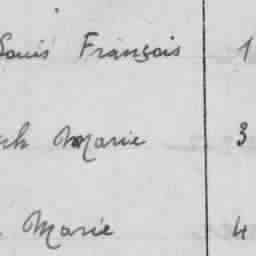 Louis François 1
Marie 3
Marie 4